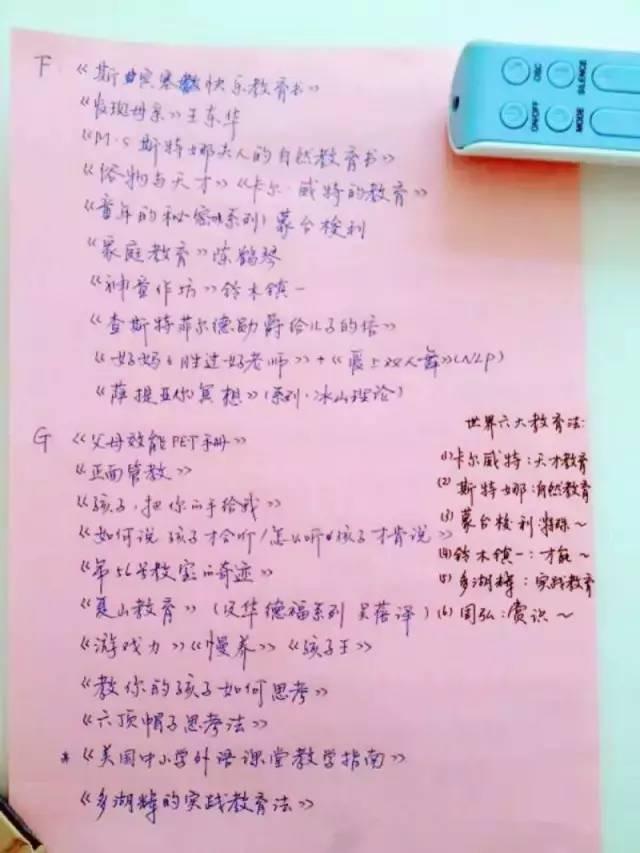 F 《斯宾塞 快乐教育书》
《夜斑母亲》王东华
《M·S 斯特娜夫人的自然教育书》
《俗物与天才》《卡尔·威特的教育》
《童年的秘密》(系列) 蒙台梭利
《家庭教育》陈鹤琴
《神童作坊》铃木镇一
《查斯特菲尔德勋爵给儿子的信》
《好妈妈胜过好老师》+《爱上双人舞》(NLP)
《萨提亚你冥想》(系列·冰山理论)
G 《父母效能PET手册》
《正面管教》
《孩子,把你的手给我》
《如何说 孩子才会听/怎么听 孩子才肯说》
《第56号教室的奇迹》
《夏山教育》(汉华德福系列 吴蓓译)
《游戏力》《慢养》《孩子王》
《教你的孩子如何思考》
《六顶帽子思考法》
* 《美国中小学外语课堂教学指南》
《多湖辉的实践教育法》
世界六大教育法:
(1) 卡尔威特:天才教育
(2) 斯特娜:自然教育
(3) 蒙台梭利:特殊~
(4) 铃木镇一:才能~
(5) 多湖辉:实践教育
(6) 周弘:赏识~
OSC
SILENCE
ON/OFF
MODE